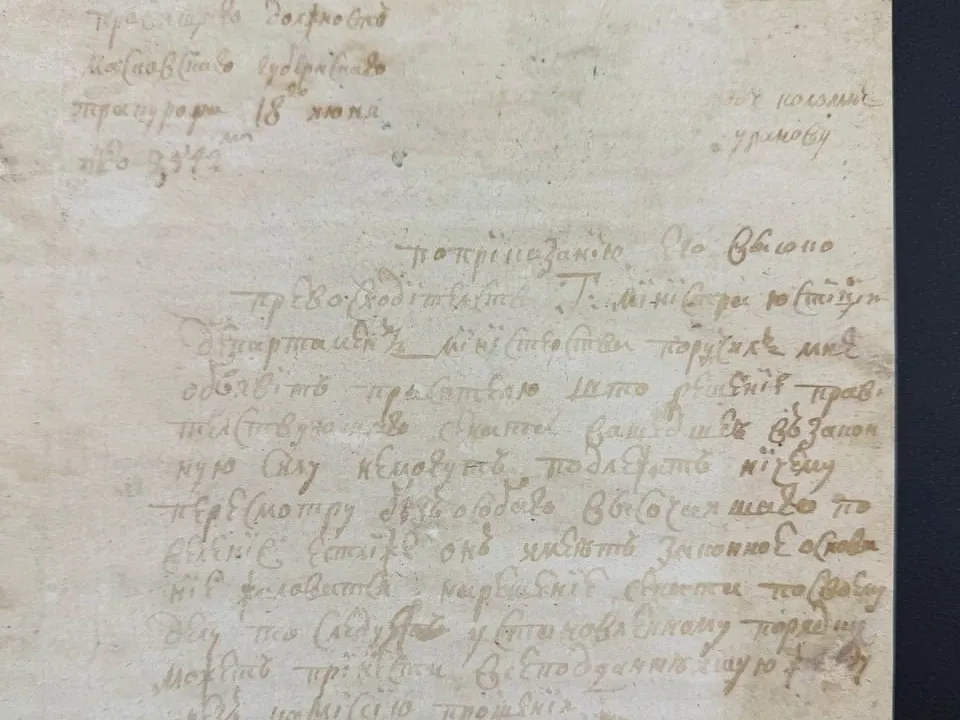 должность
Масковскаго губернскаго
пракурора 18 июня
№ 3542
коломи=
уранову
поприказанїю Его высоко
превосходителства Г: министра юстицїи
департаментъ министерства поручилъ мне
объявить прасителю што решенїе прави
телствующаго сената вашедшея въ закон
ную силу немогутъ подлежать нїчему
пересмотру безъ особаго высочаишаго по
веленїя естли онъ имеетъ законное основа
нїе жаловатся нарешенїе сената посвоему
делу то следуя установленному порядку
можетъ принести всеподданнеишую
прошенїя